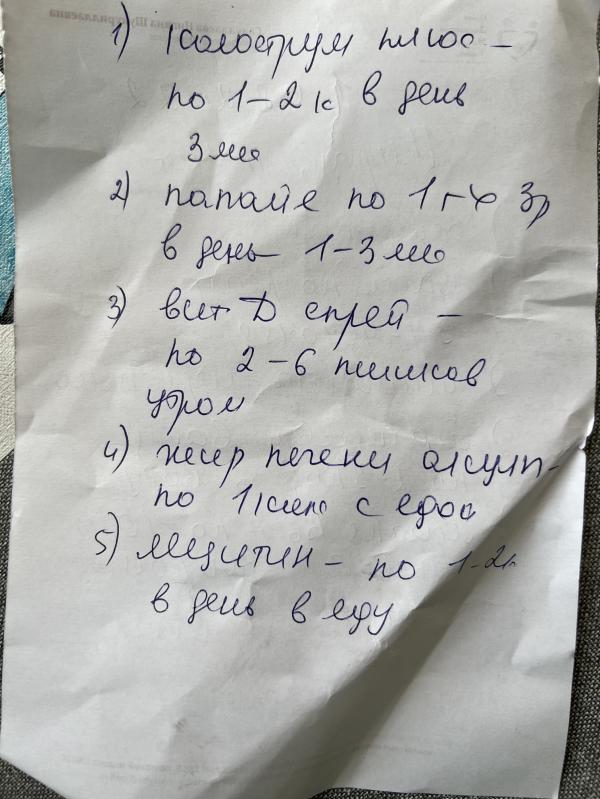 1) Колострум плюс –
по 1–2 к в день
3 мес
2) папайе по 1 т х 3 р
в день 1–3 мес
3) вит Д спрей –
по 2–6 пшиков
утром
4) жир печени акулы –
по 1 капс с едой
5) Лецитин – по 1–2 к
в день в еду